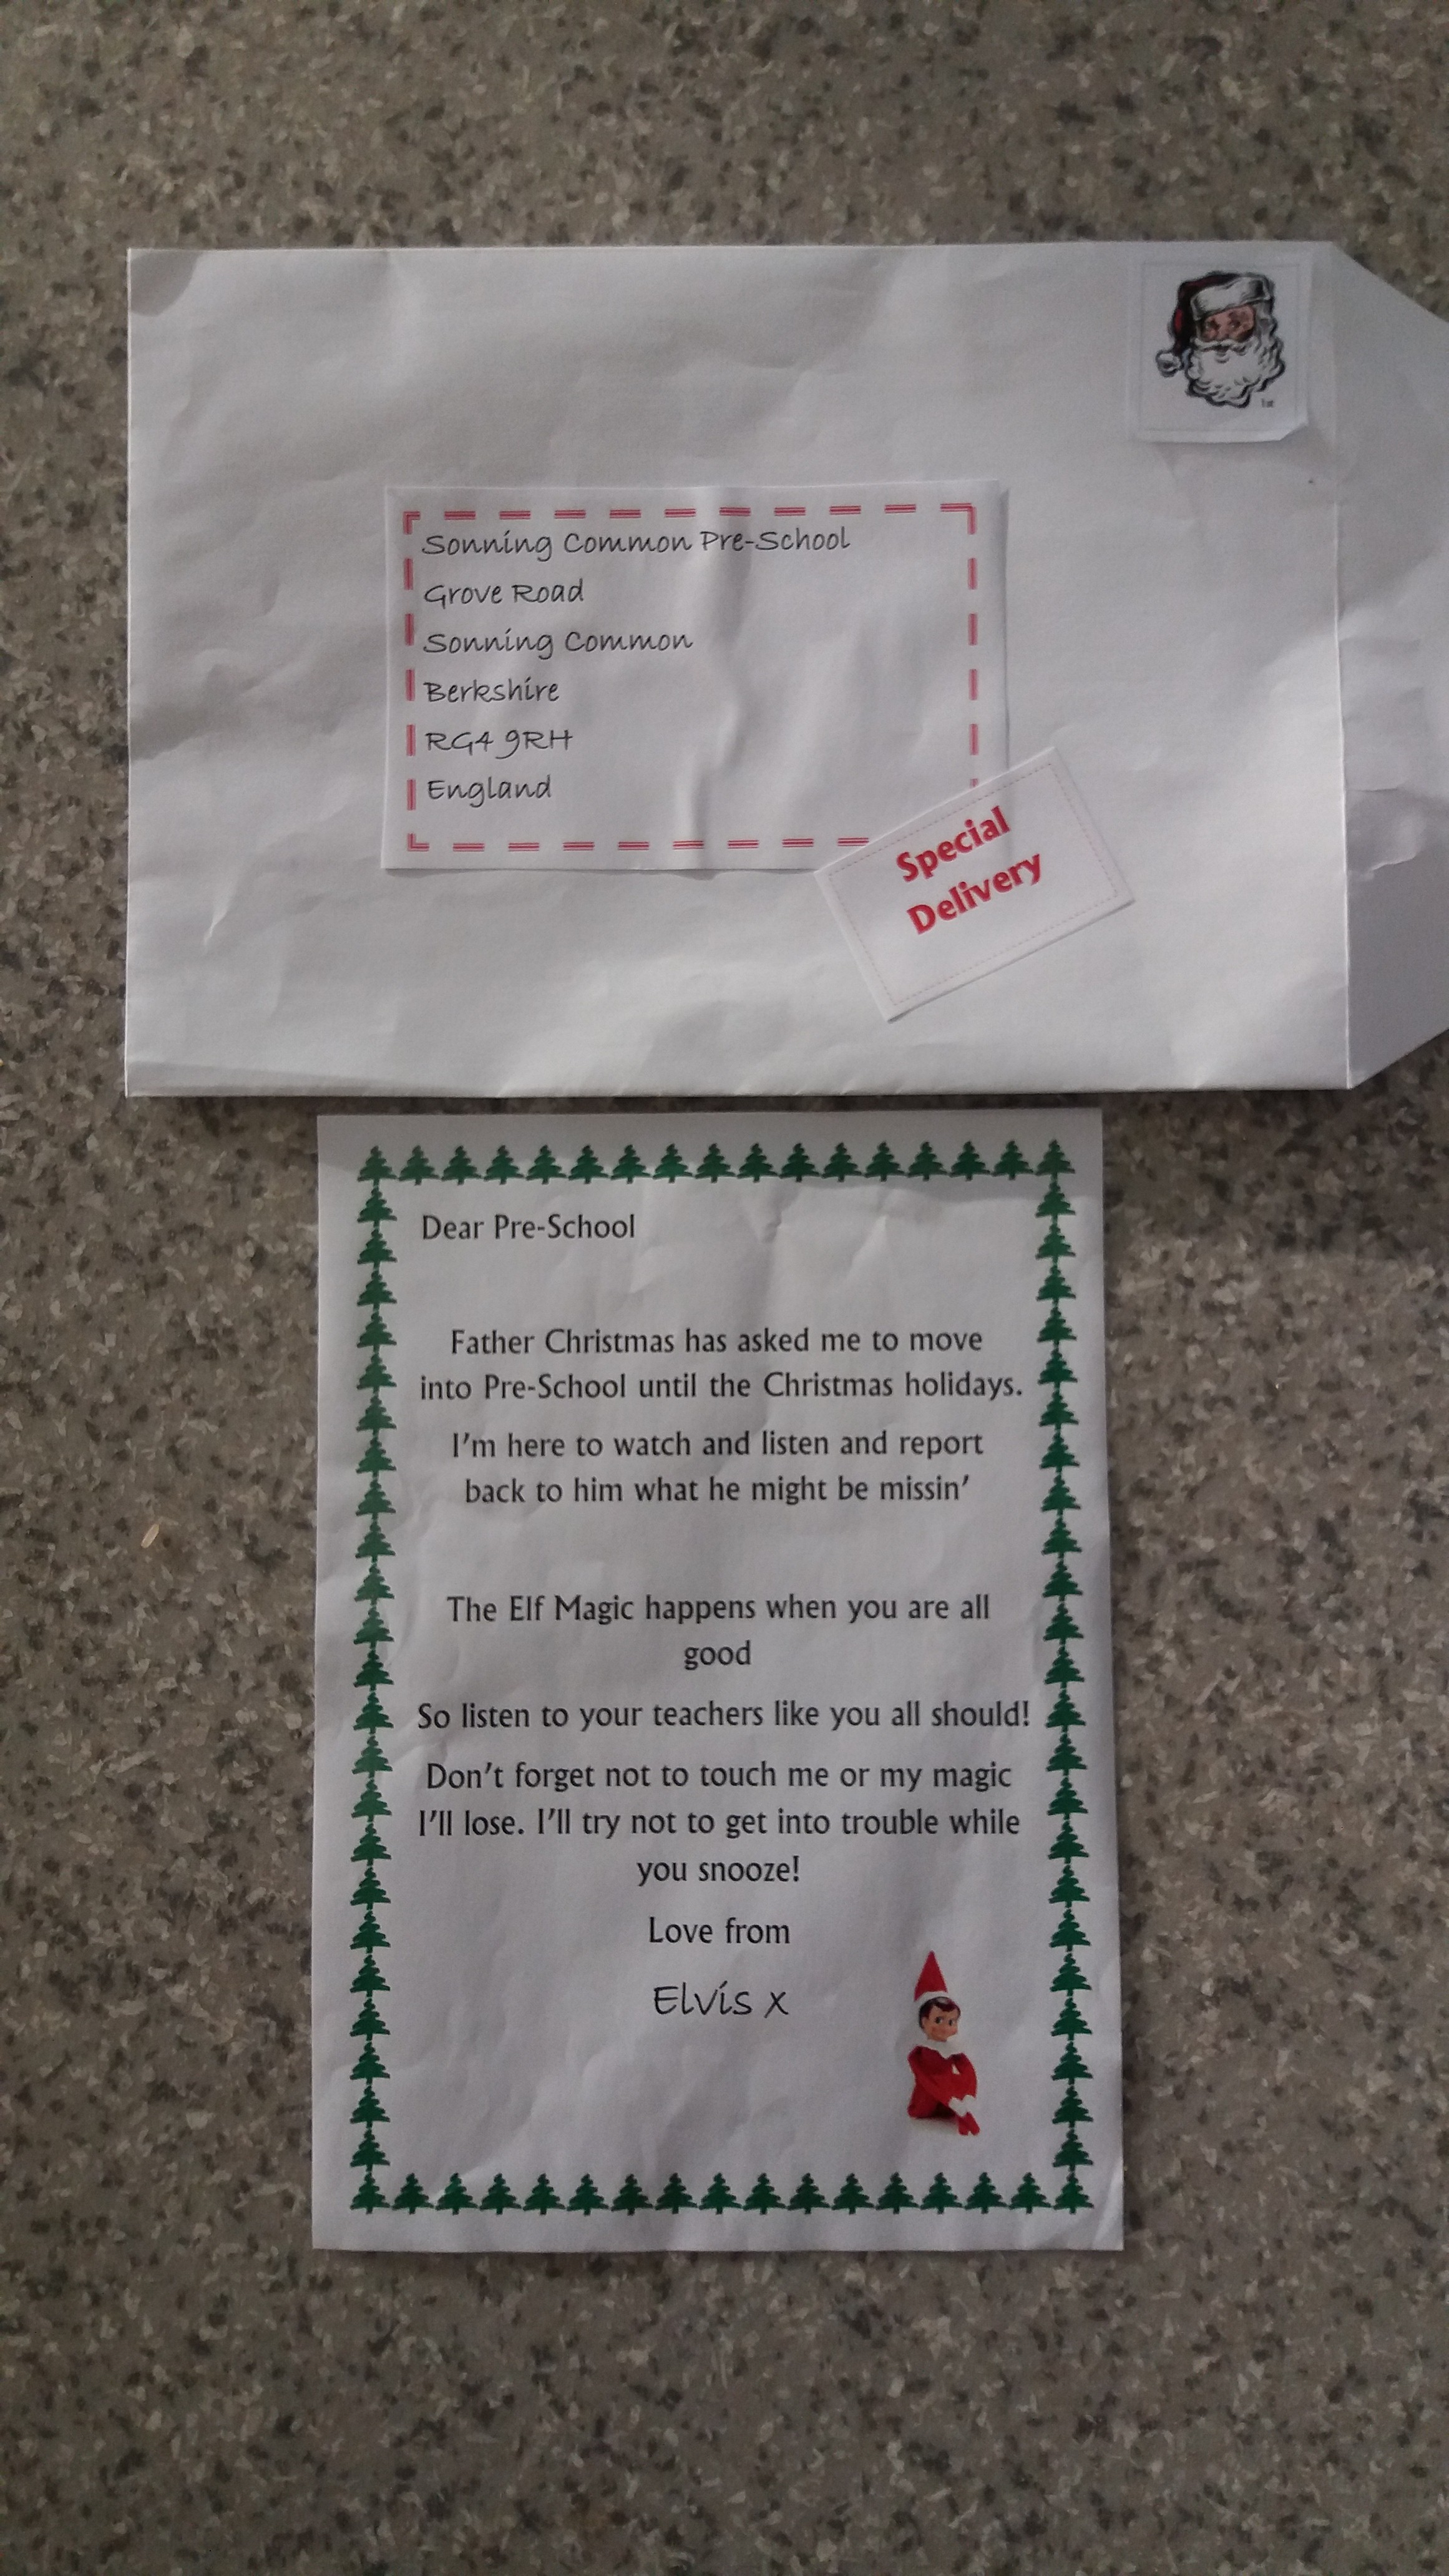 1st
Sonning Common Pre-School
Grove Road
Sonning Common
Berkshire
RG4 9RH
England
Special
Delivery
Dear Pre-School
Father Christmas has asked me to move
into Pre-School until the Christmas holidays.
I'm here to watch and listen and report
back to him what he might be missin'
The Elf Magic happens when you are all
good
So listen to your teachers like you all should!
Don't forget not to touch me or my magic
I'll lose. I'll try not to get into trouble while
you snooze!
Love from
Elvis x